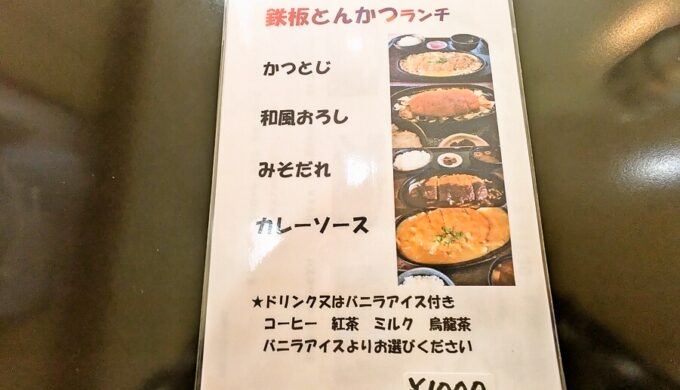 鉄板とんかつランチ
かつとじ
和風おろし
みそだれ
カレーソース
★ドリンク又はバニラアイス付き
コーヒー 紅茶 ミルク 烏龍茶
バニラアイスよりお選びください
¥1000